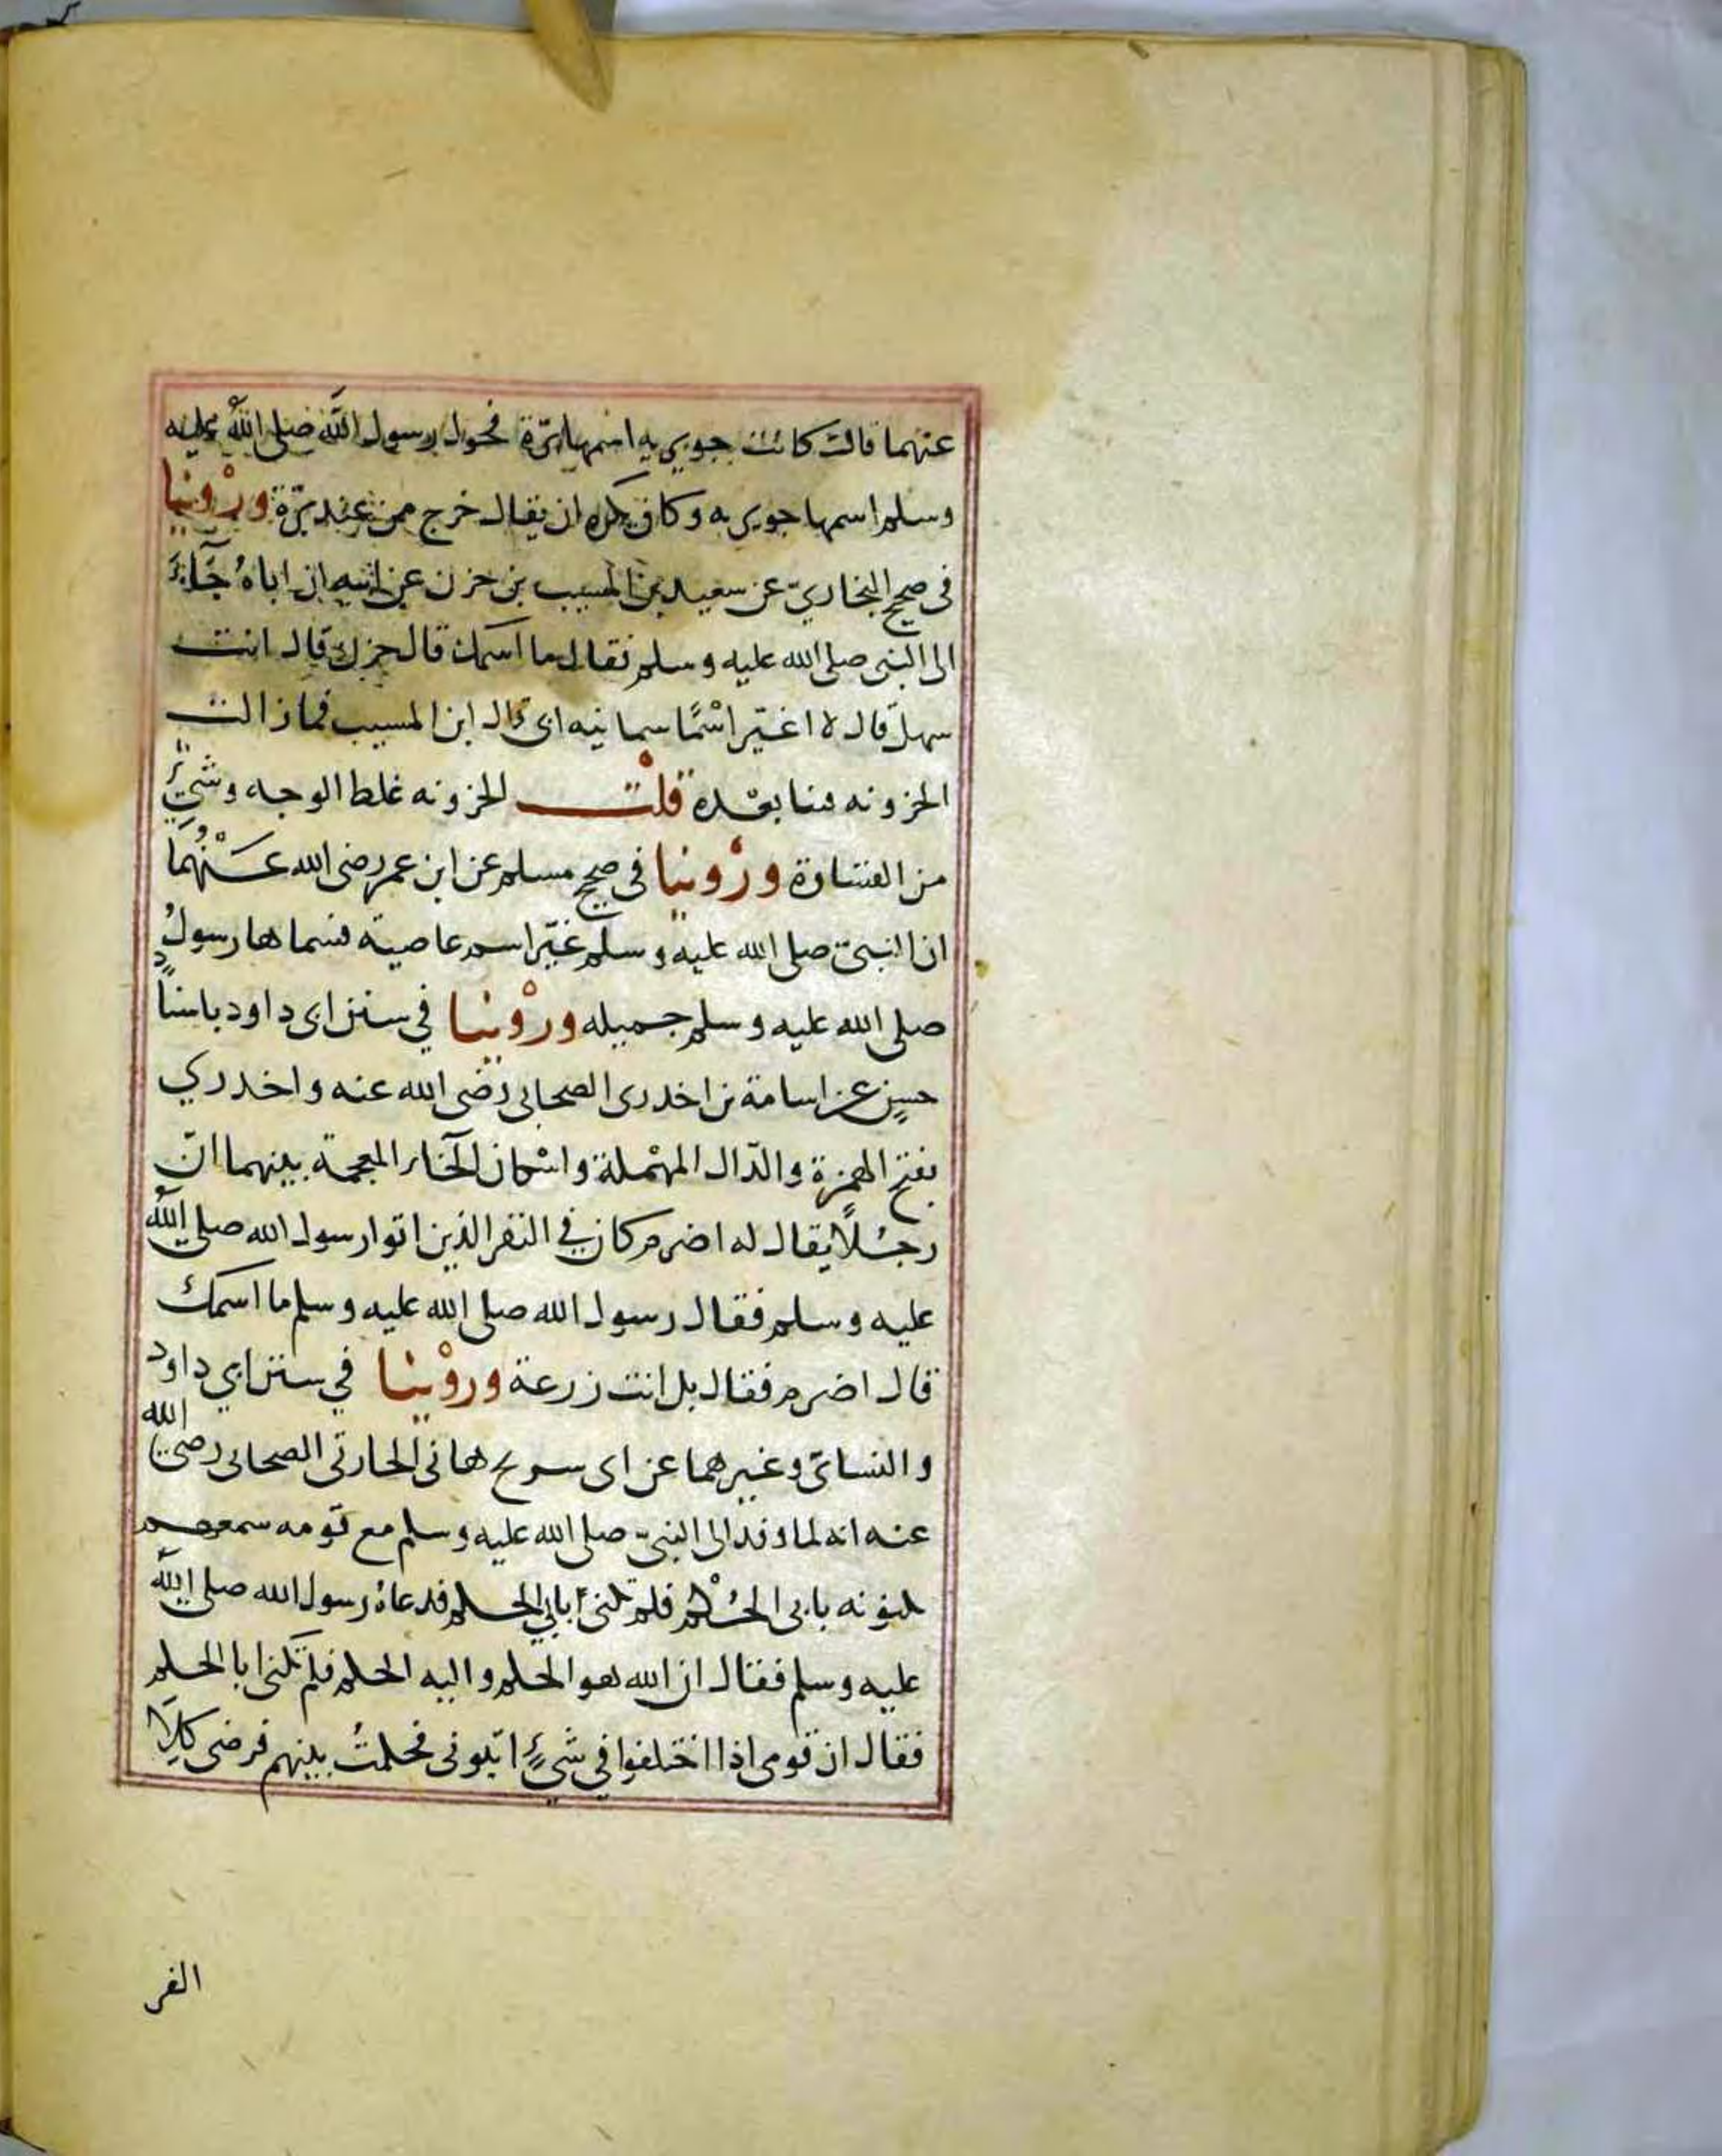 عنهما قالت كانت جويريه اسمها برّة فحول رسول الله صلى الله عليه
وسلم اسمها جويريه وكان يكره ان يقال خرج من عند برّة ورْوينا
فى صحيح البخاريّ عن سعيد بن المسيب بن حزن عن ابيه ان اباهُ جَآءَ
الى النبى صلى الله عليه وسلم فقال ما اسمك قال حزن قال انت
سهل قال لا اغيّر اسْمًا سمانيه ابى قال ابن المسيب فمازالت
الحزونه فينا بعْده قلْت الحزونه غلظ الوجه وشيءٌ
من القساوة ورْوينا فى صحيح مسلم عن ابن عمر رضى الله عَنْهُمَا
ان النبىّ صلى الله عليه وسلم غيّر اسم عاصية فسماها رسولُ
صلى الله عليه وسلم جميله ورْوينا في سنن ابى داود باسنادٍ
حسنٍ عن اسامة بن اخدرى الصحابى رضى الله عنه واخدري
بفتح الهمزة والدّال المهْملة واسْكان الخآء المعجمة بينهما انّ
رجُلًا يقال له اضرم كان في النفر الذين اتوا رسول الله صلى الله
عليه وسلم فقال رسول الله صلى الله عليه وسلم ما اسمك
قال اضرم فقال بل انت زرعة وروْينا في سنن ابي داود
والنسائى وغيرهما عن ابى سريح هانى الحارثى الصحابى رضى الله
عنه انه لما وفد الى النبىّ صلى الله عليه وسلم مع قومه سمعهم
يكنونه بابى الحُكْم فلم تكنىّ بابي الحكم فدعاهُ رسول الله صلى الله
عليه وسلم فقال ان الله هو الحكم واليه الحكم فلم تكنى ابا الحكم
فقال ان قومى اذا اختلفوا في شيءٍ اتونى فحكمتُ بينهم فرضى كِلَا
الفر